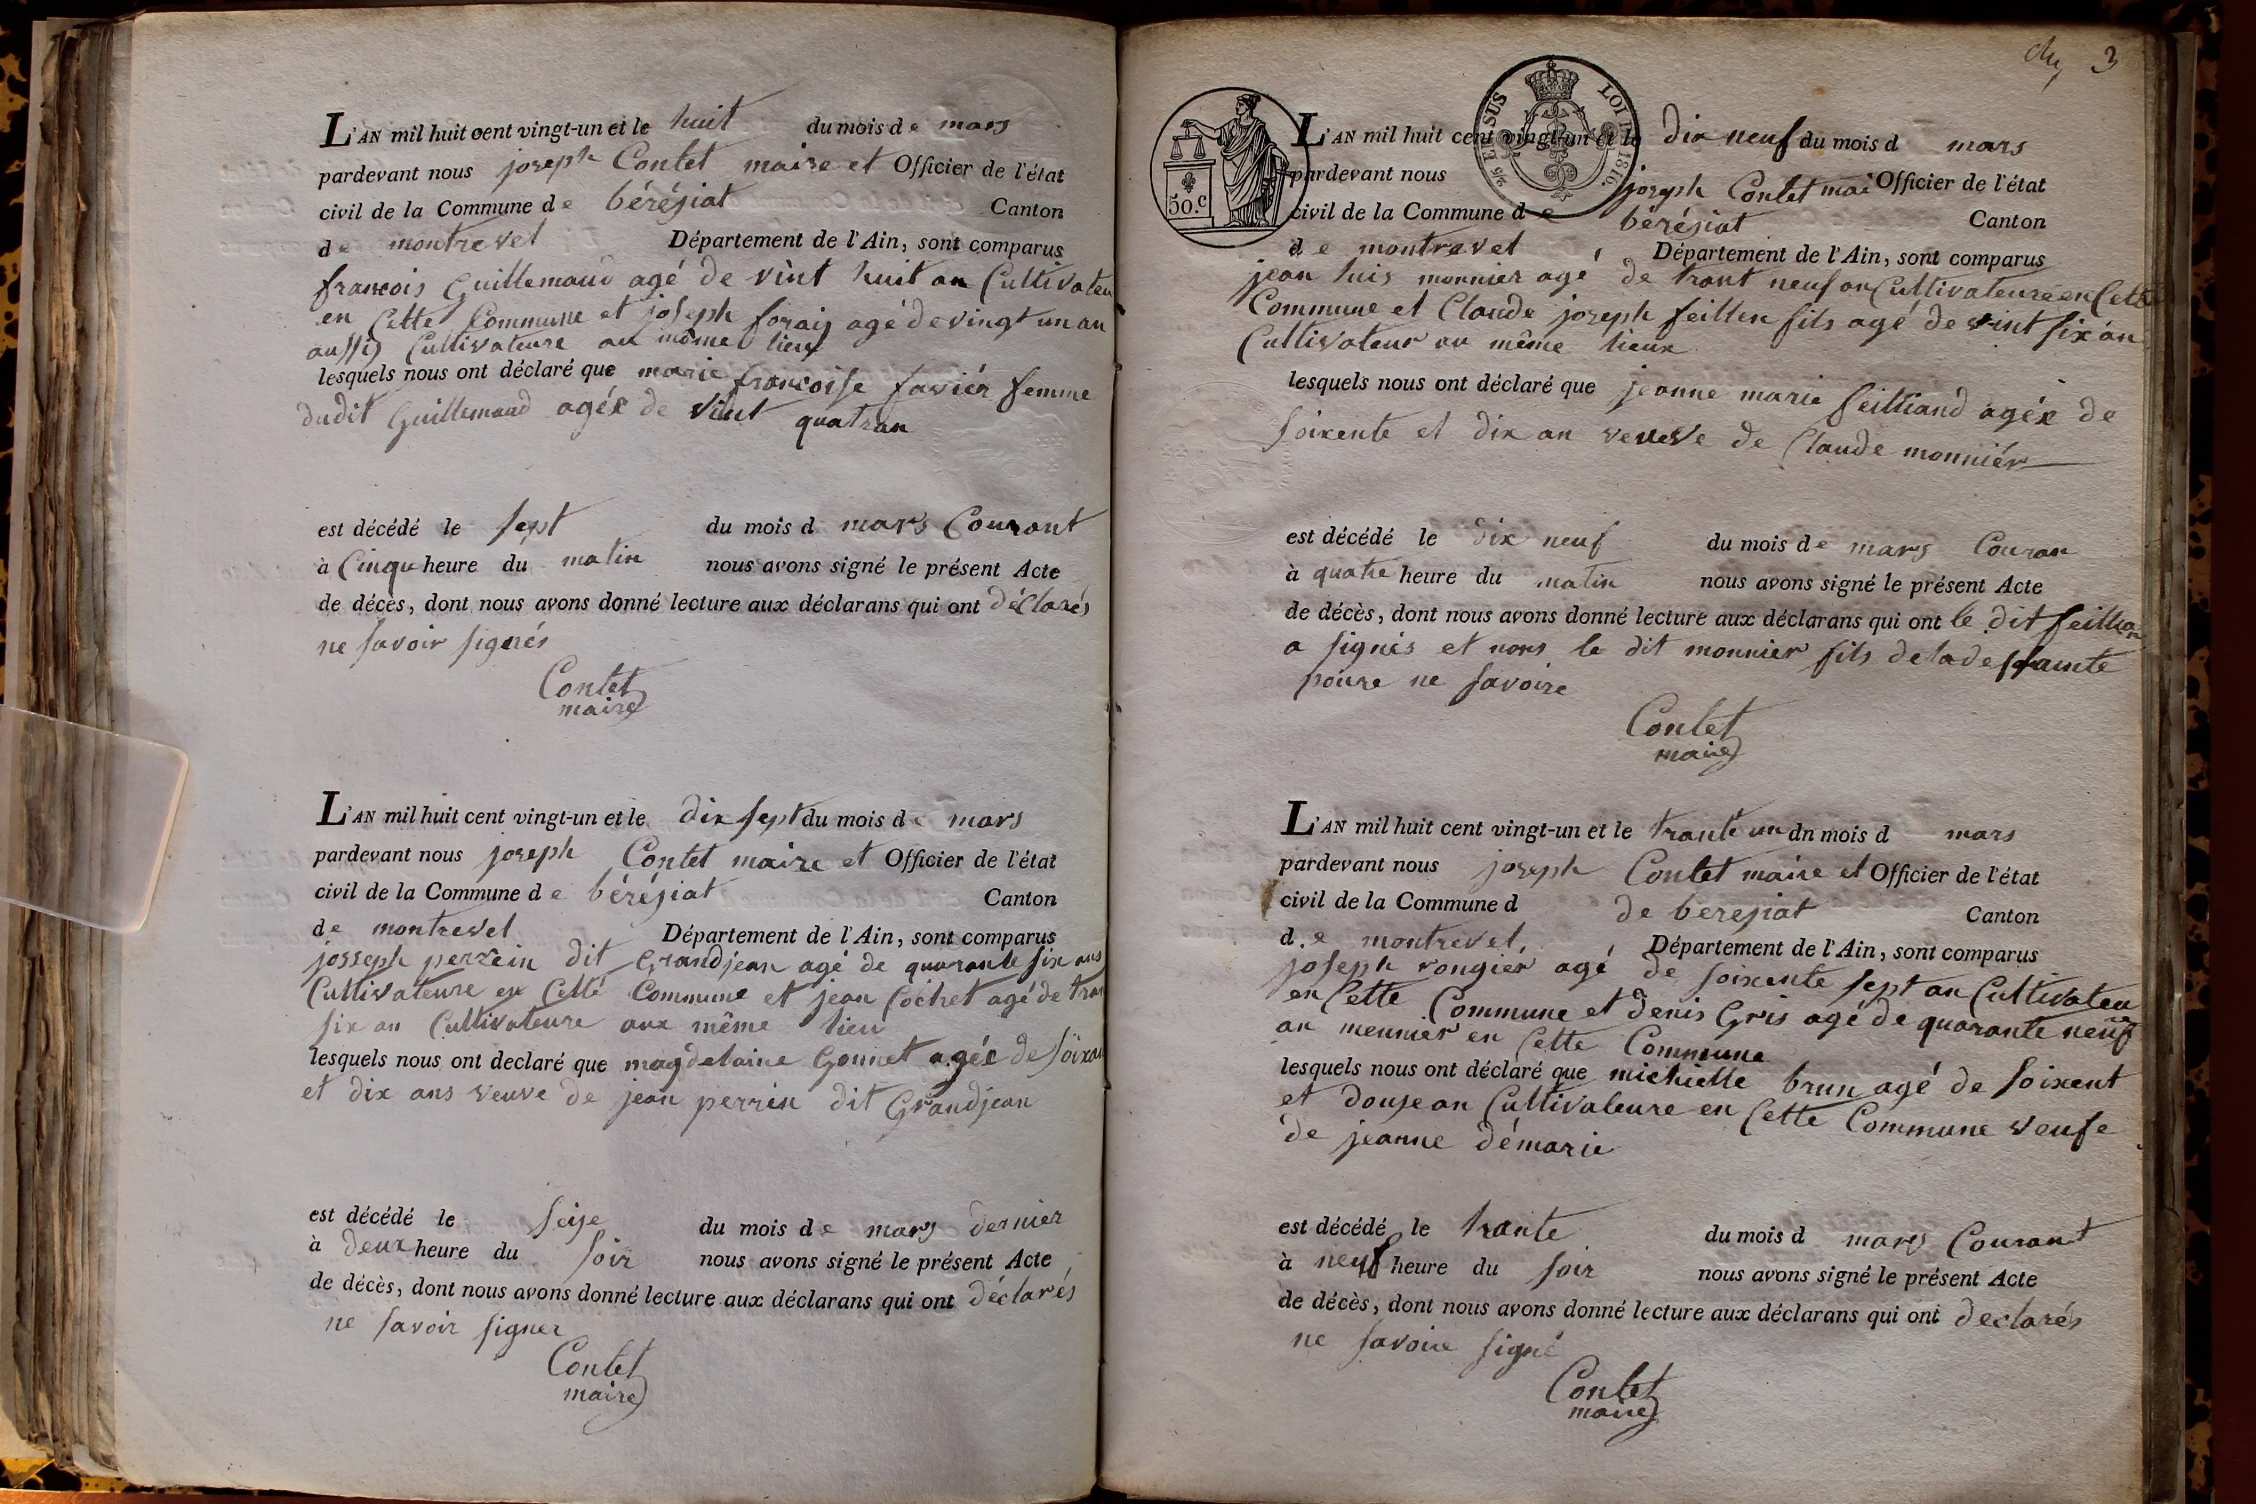 L'AN mil huit cent vingt-un et le huit du mois de mars
pardevant nous joseph Contet maire et Officier de l'état
civil de la Commune de béréziat Canton
de montrevel Département de l'Ain, sont comparus
francois Guillemaud agé de vint huit an Cultivateu
en Cette Commune et joseph forai agé de vingt un an
aussi Cultivateure au même lieux
lesquels nous ont déclaré que marie francoisse favier femme
dudit Guillemaud agée de vint quatran
est décédé le sept du mois d mars Courant
à Cinqu heure du matin nous avons signé le présent Acte
de décès, dont nous avons donné lecture aux déclarans qui ont déclarés
ne savoir signés
Contet
maire
L'AN mil huit cent vingt-un et le dix sept du mois de mars
pardevant nous joseph Contet maire et Officier de l'état
civil de la Commune de béréziat Canton
de montrevel Département de l'Ain, sont comparus
josseph perrein dit Grandjean agé de quarante six ans
Cultivateure en Cette Commune et jean Cochet agé de tran
six an Cultivateure aux même lieu
lesquels nous ont declaré que magdelaine Gonnet agée de soixan
et dix ans veuve de jean perrin dit Grandjean
est décédé le seize du mois de mars dernier
à deux heure du soir nous avons signé le présent Acte
de décès, dont nous avons donné lecture aux déclarans qui ont déclarés
ne savoir signer
Contet
maire
3
50.c
LOI 1816.
L'AN mil huit cent vingt-un et le dix neuf du mois d mars
pardevant nous joseph Contet mai Officier de l'état
civil de la Commune de béréziat Canton
de montrevel Département de l'Ain, sont comparus
jean luis monnier agé de trant neuf an Cultivateure en Cette
Commune et Claude joseph feillen fils agé de vint six an
Cultivateur au même lieux
lesquels nous ont déclaré que jeanne marie feilliand agée de
soixente et dix an veuve de Claude monniér
est décédé le dix neuf du mois de mars Couran
à quatre heure du matin nous avons signé le présent Acte
de décès, dont nous avons donné lecture aux déclarans qui ont le dit feillian
a signés et nons le dit monnier fils de la deffainte
poure ne savoire
Contet
maire
L'AN mil huit cent vingt-un et le trante un dn mois d mars
pardevant nous joseph Contet maire et Officier de l'état
civil de la Commune d de bereziat Canton
de montrevel, Département de l'Ain, sont comparus
joseph rongiér agé de soixente sept an Cultivateu
en Cette Commune et denis Gris agé de quarante neuf
an meunier en Cette Commune
lesquels nous ont déclaré que michielle brun agé de soixent
et douze an Cultivateure en Cette Commune veufe
de jeanne démarie
est décédé le trante du mois d mars Courant
à neuf heure du soir nous avons signé le présent Acte
de décès, dont nous avons donné lecture aux déclarans qui ont declarés
ne savoire signé
Contet
maire